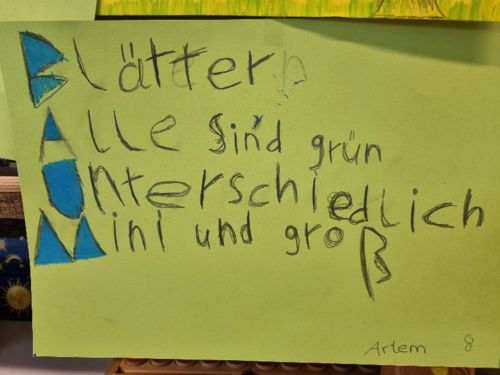 Blätter
Alle sind grün
Unterschiedlich
Mini und groß
Artem 8